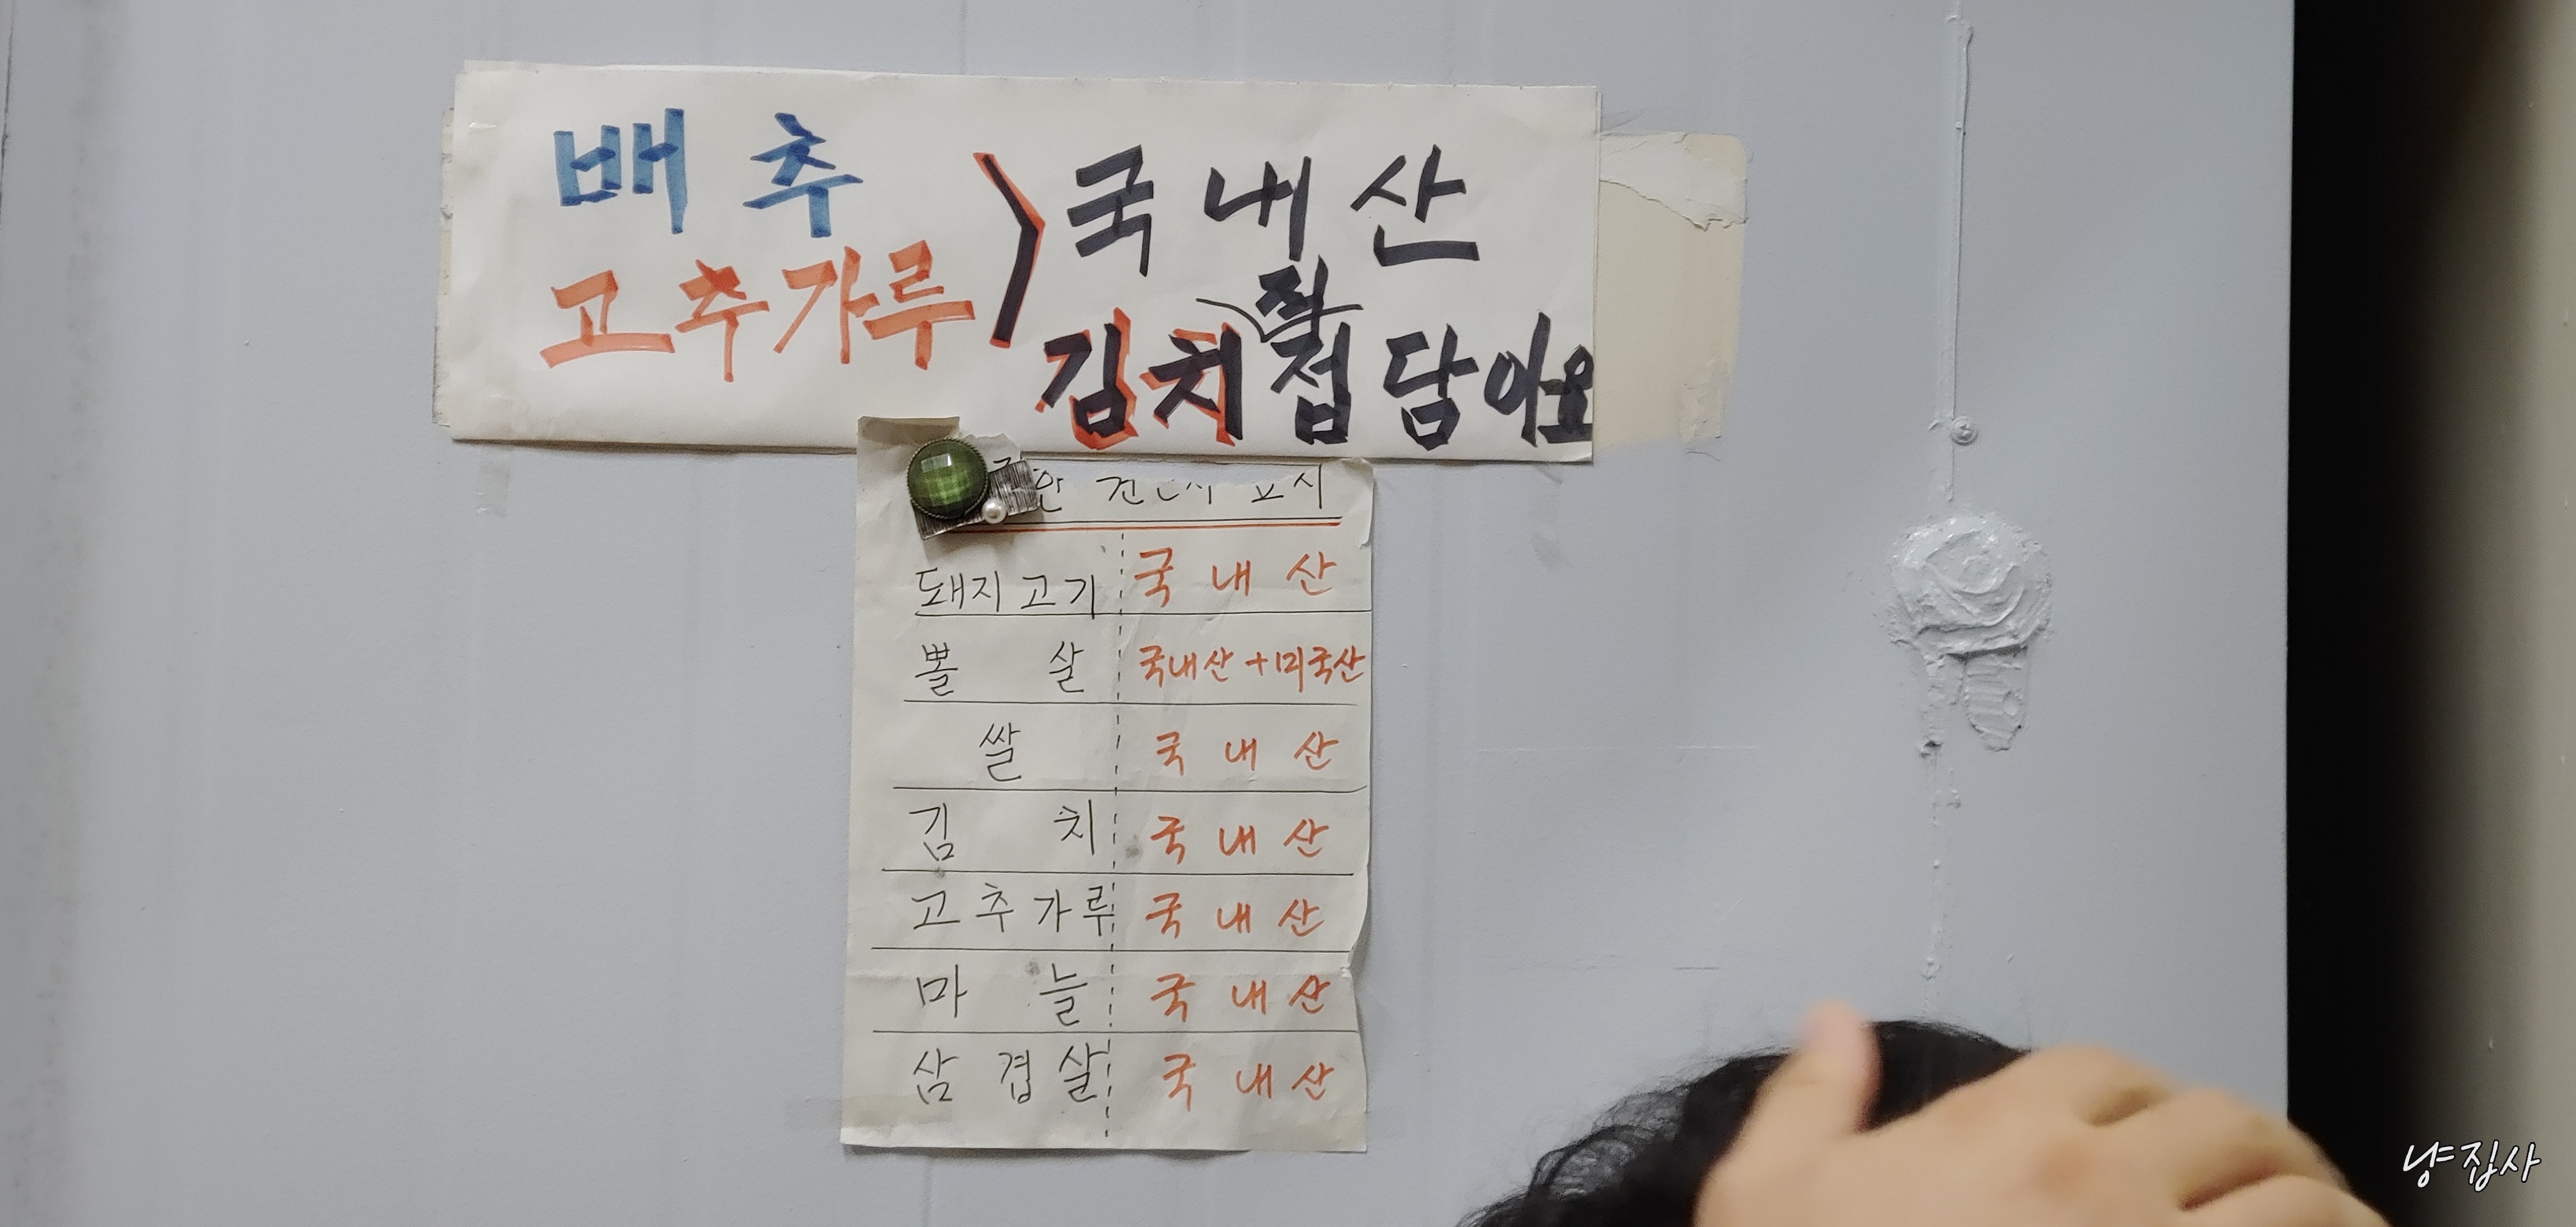 배추
고추가루 > 국내산
김치 직접 담아요
돼지고기 국내산
뽈살 국내산+미국산
쌀 국내산
김치 국내산
고추가루 국내산
마늘 국내산
삼겹살 국내산
냥집사